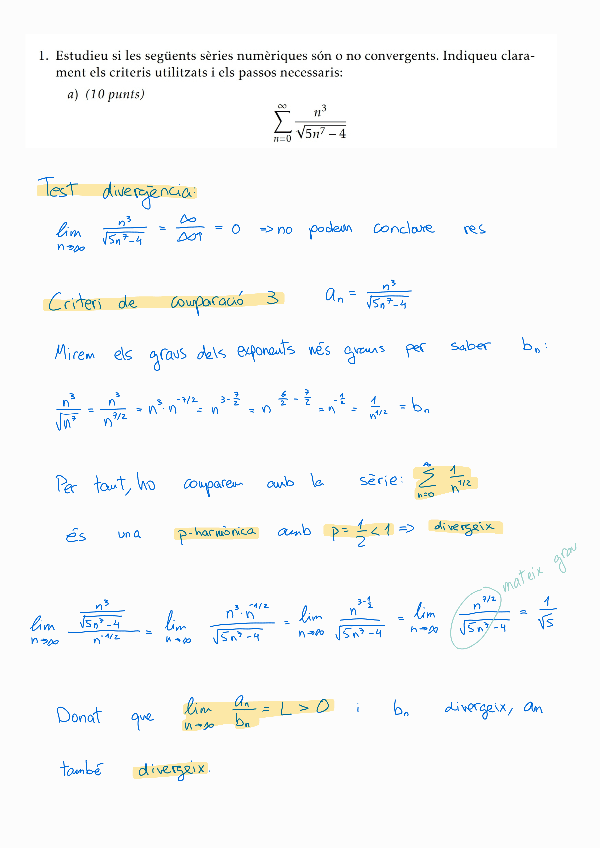 1. Estudieu si les següents sèries numèriques són o no convergents. Indiqueu clara-
ment els criteris utilitzats i els passos necessaris:
a) (10 punts)
∑_{n=0}^{∞} n³/√(5n⁷ − 4)
Test divergència:
lim_{n→∞} n³/√(5n⁷-4) = ∞/∞↑ = 0 => no podem concloure res
Criteri de comparació 3 a_n = n³/√(5n⁷-4)
Mirem els graus dels exponents més grans per saber b_n:
n³/√n⁷ = n³/n^{7/2} = n³·n^{-7/2} = n^{3-7/2} = n^{6/2-7/2} = n^{-1/2} = 1/n^{1/2} = b_n
Per tant, ho comparem amb la sèrie: ∑_{n=0}^{∞} 1/n^{1/2}
és una p-harmònica amb p = 1/2 < 1 => divergeix
mateix grau
lim_{n→∞} (n³/√(5n⁷-4))/n^{-1/2} = lim_{n→∞} n³·n^{-1/2}/√(5n⁷-4) = lim_{n→∞} n^{3-1/2}/√(5n⁷-4) = lim_{n→∞} n^{7/2}/√(5n⁷-4) = 1/√5
Donat que lim_{n→∞} a_n/b_n = L > 0 i b_n divergeix, a_n
també divergeix.